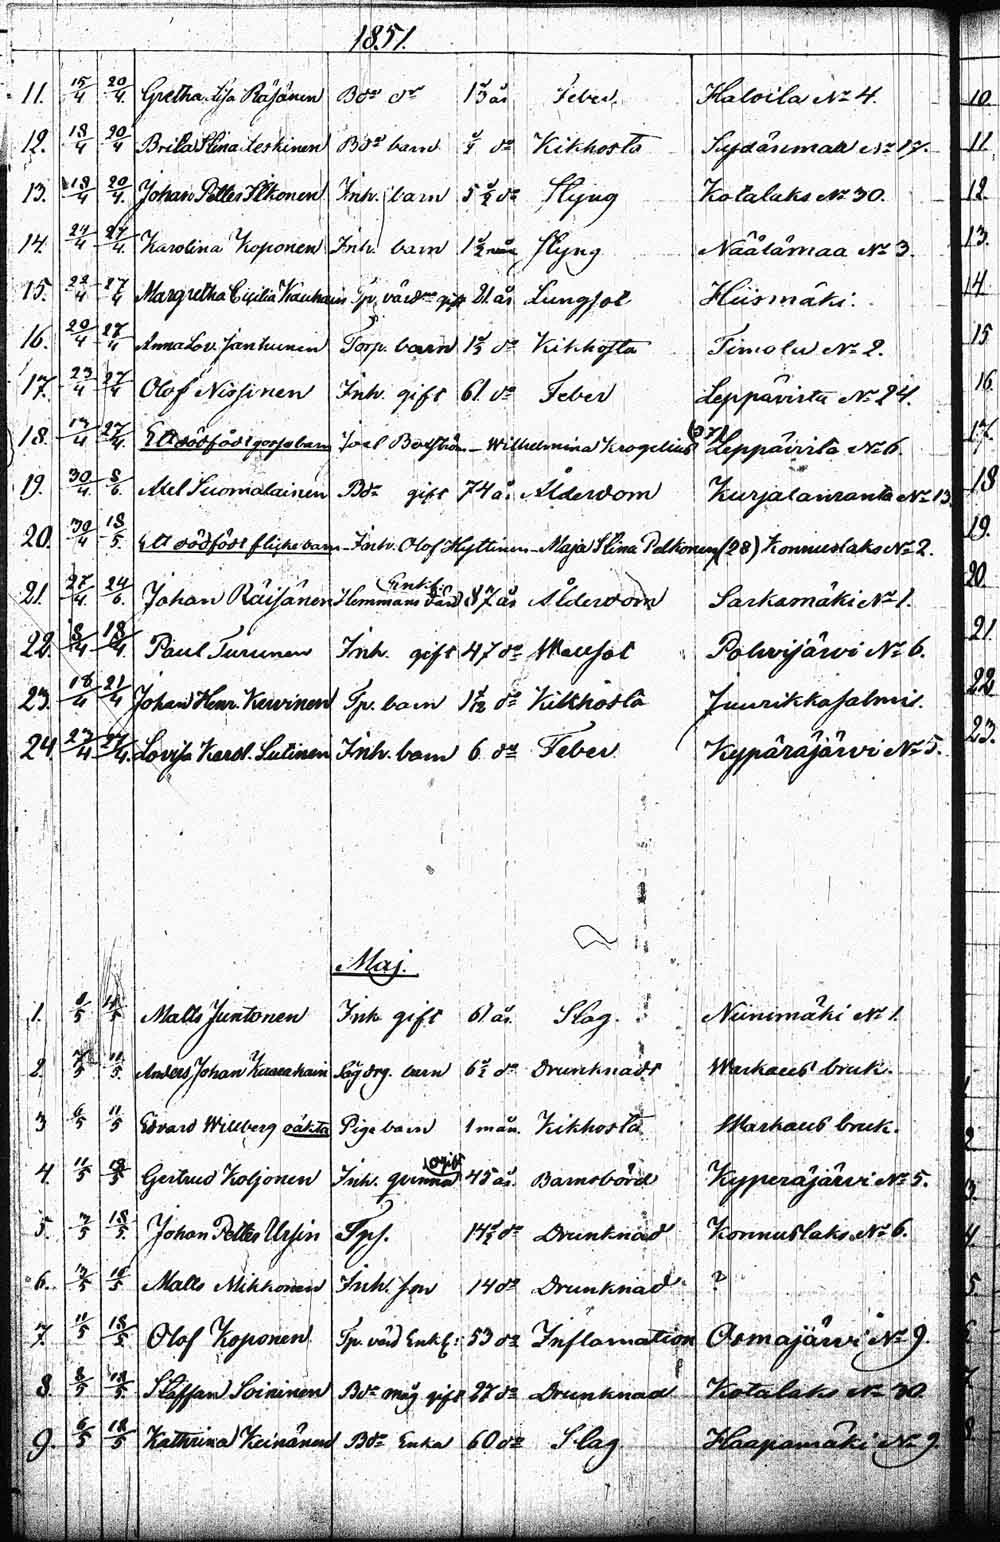 1851.
11. 15/4 20/4. Gretha Lisa Räsänen Bde dr 1 1/3 år Feber Haloila No 4.
12. 18/4 20/4 Brita Stina Leskinen Bde barn do Kikhosta Sydänmaa No 17.
13. 18/4 20/4. Johan Petter Itkonen Inh. barn 5 1/2 do Slyng Kotalaks No 30.
14. 24/4 27/4. Karolina Koponen Inh. barn 1 1/2 mån Slyng Näätämaa No 3.
15. 22/4 27/4 Margretha Cicilia Kauhain Tp. gift 21 år Lungsot Hiismäki.
16. 20/4 27/4 Anna Lov. Jantunen Torp. barn do Kikhosta Timola No 2.
17. 23/4 27/4 Olof Nissinen Inh. gift 61 do Feber Leppävirta No 24.
18. 17/4 27/4. Ett dödfödt gossebarn Joel Boxström - Wilhelmina Krogelius (37) Leppävirta No 6.
19. 30/4 8/6. Abel Suomalainen Bde gift 74 år Ålderdom Kurjalanranta No 13
20. 30/4 18/5. Ett dödfödt flickebarn - Inh. Olof Hyttinen - Maja Stina Pelkonen (28) Konnuslaks No 2.
21. 27/4. 24/6. Johan Räisänen Hemmans Enkl. 87 år Ålderdom Sarkamäki No 1.
22. 8/4 18/4. Paul Turunen Inh. gift 47 do Wattsot Polvijärvi No 6.
23. 18/4 21/4 Johan Henr. Kervinen Tp. barn do Kikhosta Juurikkasalmi.
24. 23/4 27/4. Lovisa Karol. Sutinen Inh. barn 6 do Feber Kypäräjärvi No 5.
Maj.
1. Matts Juntonen Inh gift 61 år. Slag. Niinimäki No 1.
2 7/5 11/5. Anders Johan barn 6 1/2 do Drunknadt Warkaus bruk.
3 6/5 11/5 Edvard Willberg oäkta Pige barn 1 mån. Kikhosta Warkaus bruk.
4. 11/5 18/5 Gertrud Koljonen Inh. qvinna ogift 45 år. Barnsbörd Kyperäjärvi No 5.
5. 7/5 18/5. Johan Petter Ursin Sps. 14 1/2 do Drunknad Konnuslaks No 6.
6. 18/5 Matts Mikkonen Inh. son 14 do Drunknad ?
7. 11/5 18/5 Olof Koponen Tp. värd Enkl: 53 do Inflamation Osmajärvi No 9.
8. 8/5 18/5. Staffan Soininen Bde måg gift 27 do Drunknad Kotalaks No 30
9. 6/5 18/5 Kathrina Keinänen Bde Enka 60 do Slag Haapamäki No 9
10
11
12.
13.
14
15
16.
17.
18
19.
20.
21.
22
23.
1
2
3.
4.
5
6
7
8